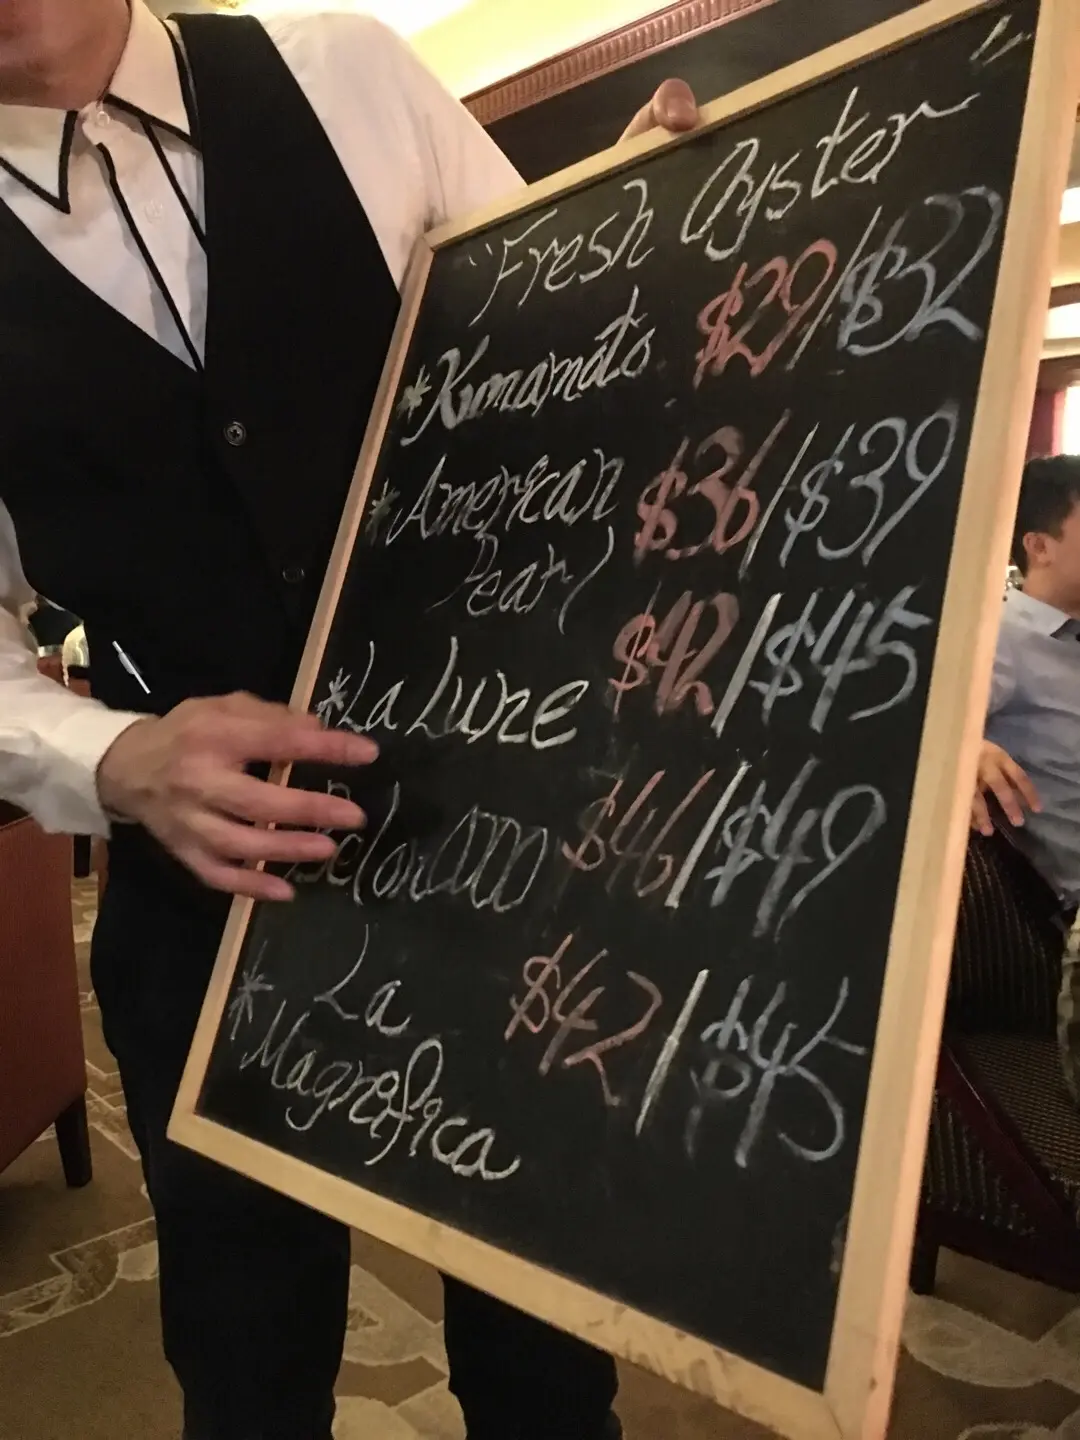 "Fresh Oyster"
*Kumamoto $29/$32
*American $36/$39
Pearl
*La Lune $42/$45
Belon000 $46/$49
*La $42/$45
Magnefica